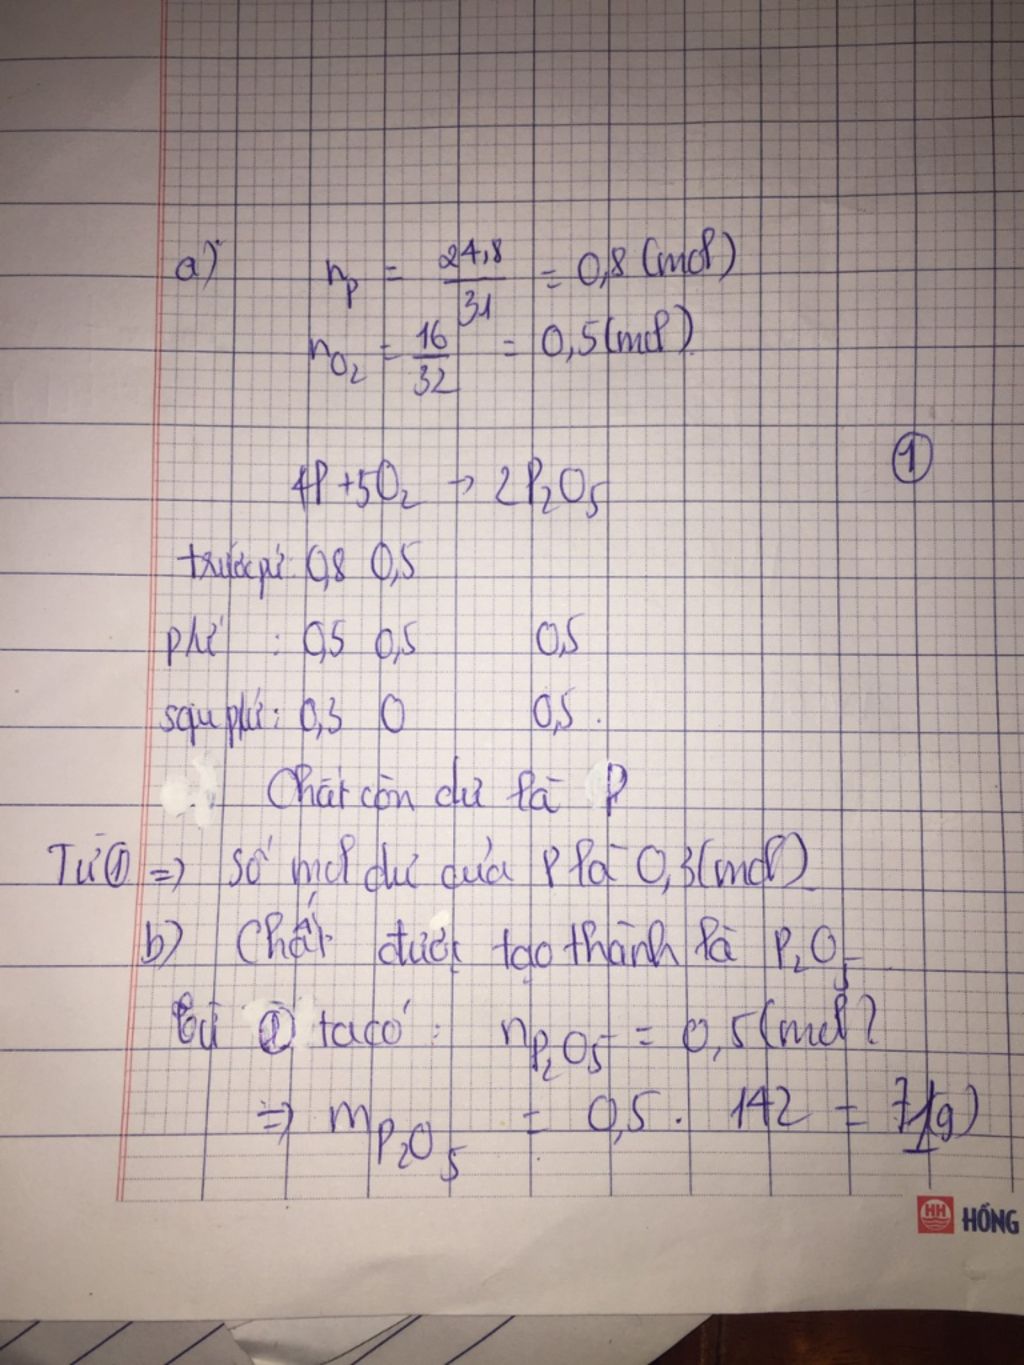 a) n_P = 24,8/31 = 0,8 (mol)
n_O₂ = 16/32 = 0,5 (mol)
4P + 5O₂ → 2P₂O₅ ①
trước pứ: 0,8 0,5
phứ : 0,5 0,5 0,5
sau phứ: 0,3 0 0,5.
Chất còn dư là P
Từ ① => Số mol dư của P là 0,3 (mol)
b) Chất được tạo thành là P₂O₅
Từ ① ta có: n_P₂O₅ = 0,5 (mol)
=> m_P₂O₅ = 0,5. 142 = 71(g)
HH HỒNG